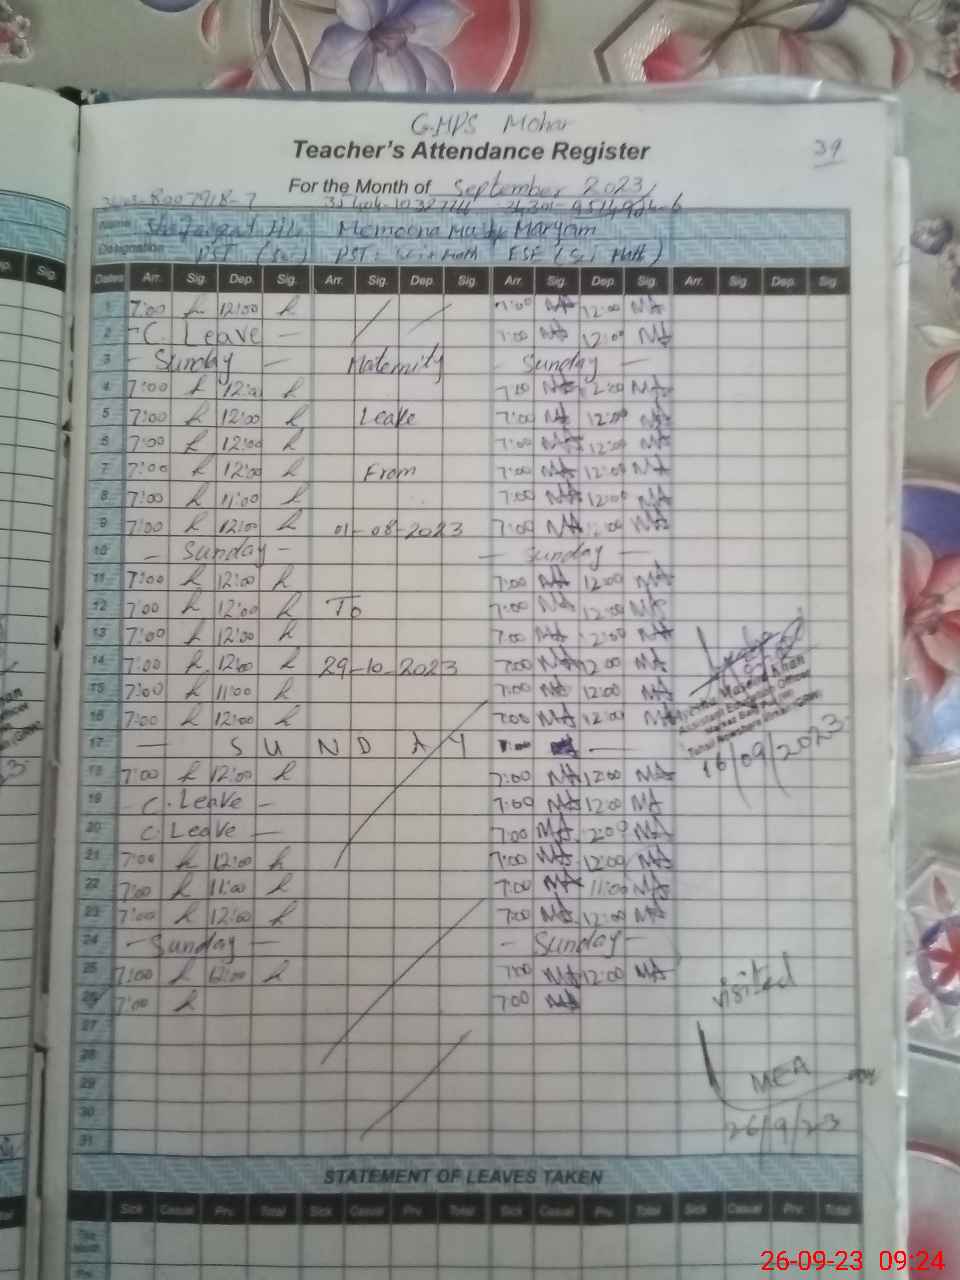 GMPS Mohar
Teacher's Attendance Register 39
For the Month of September 2023
Name Memoona Maryam
Designation PST (Sci) PST: Sci+Math ESE (Sci Math)
Dates Arr. Sig. Dep. Sig. Arr. Sig. Dep. Sig. Arr. Sig. Dep. Sig. Arr. Sig Dep. Sig
1 7:00 h 12:00 h 7:00 MA 12:00 MA
2 C. Leave - 7:00 MA 12:00 MA
3 - Sunday - Maternity - Sunday -
4 7:00 h 12:00 h 7:00 MA 12:00 MA
5 7:00 h 12:00 h Leave 7:00 MA 12:00 MA
6 7:00 h 12:00 h 7:00 MA 12:00 MA
7 7:00 h 12:00 h From 7:00 MA 12:00 MA
8 7:00 h 11:00 h 7:00 MA 12:00 MA
9 7:00 h 12:00 h 01-08-2023 7:00 MA MA
10 - Sunday - - Sunday -
11 7:00 h 12:00 h 7:00 MA 12:00 MA
12 7:00 h 12:00 h To 7:00 MA 12:00 MA
13 7:00 h 12:00 h 7:00 MA 12:00 MA
14 7:00 h 12:00 h 29-10-2023 7:00 MA 12:00 MA
15 7:00 h 11:00 h 7:00 MA 12:00 MA
16 7:00 h 12:00 h 7:00 MA 12:00 MA
17 - SUNDAY -
18 7:00 h 12:00 h 7:00 MA 12:00 MA
19 - C. Leave - 7:00 MA 12:00 MA
20 C. Leave - 7:00 MA 12:00 MA
21 7:00 h 12:00 h 7:00 MA 12:00 MA
22 7:00 h 11:00 h 7:00 MA 11:00 MA
23 7:00 h 12:00 h 7:00 MA 12:00 MA
24 - Sunday - - Sunday -
25 7:00 h 12:00 h 7:00 MA 12:00 MA
26 7:00 h 7:00 MA
27
28
29
30
31
Khan
Assistant Education Officer
16/09/2023
visited
MEA
26/9/23
STATEMENT OF LEAVES TAKEN
Sick Casual Prv. Total Sick Casual Prv. Total Sick Casual Prv. Total Sick Casual Prv. Total
26-09-23 09:24